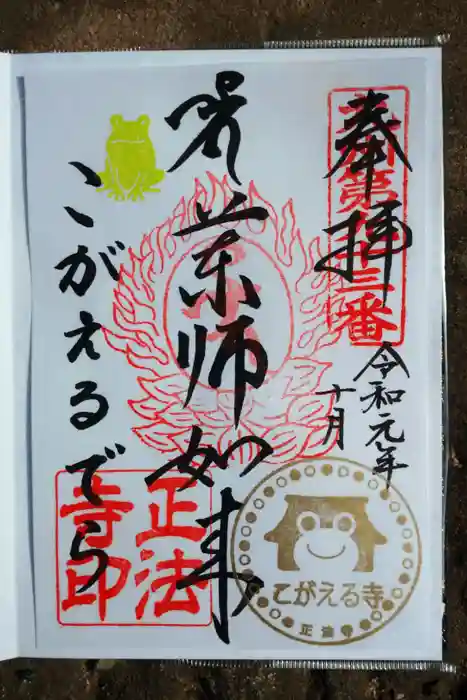 奉拝
第
三番
令和元年
十月
薬師如来
こがえるでら
正法
寺印
こがえる寺
正法寺